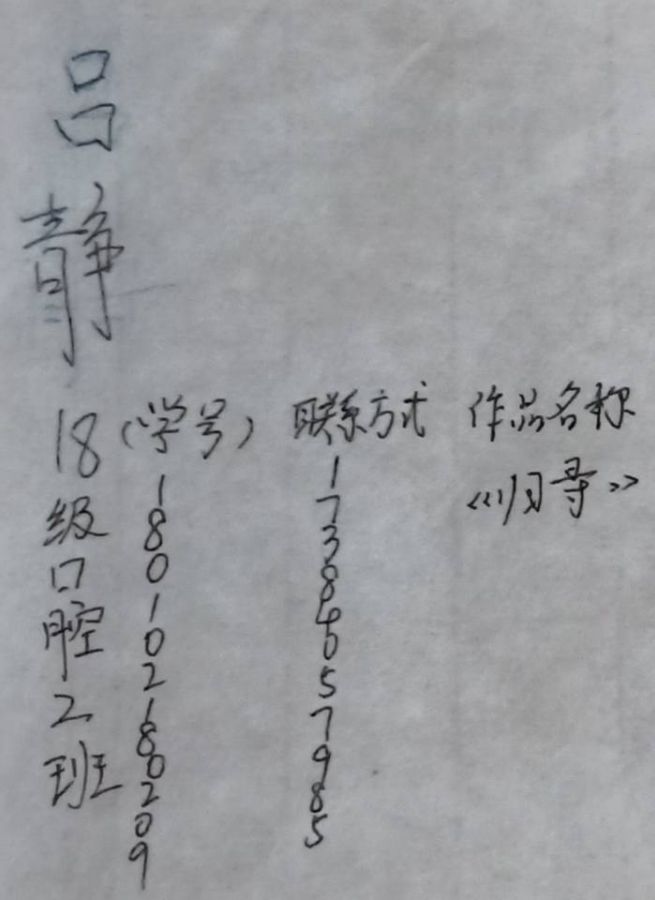 吕静
18级口腔2班
(学号)
180102180209
联系方式
17384057985
作品名称
《归寻》